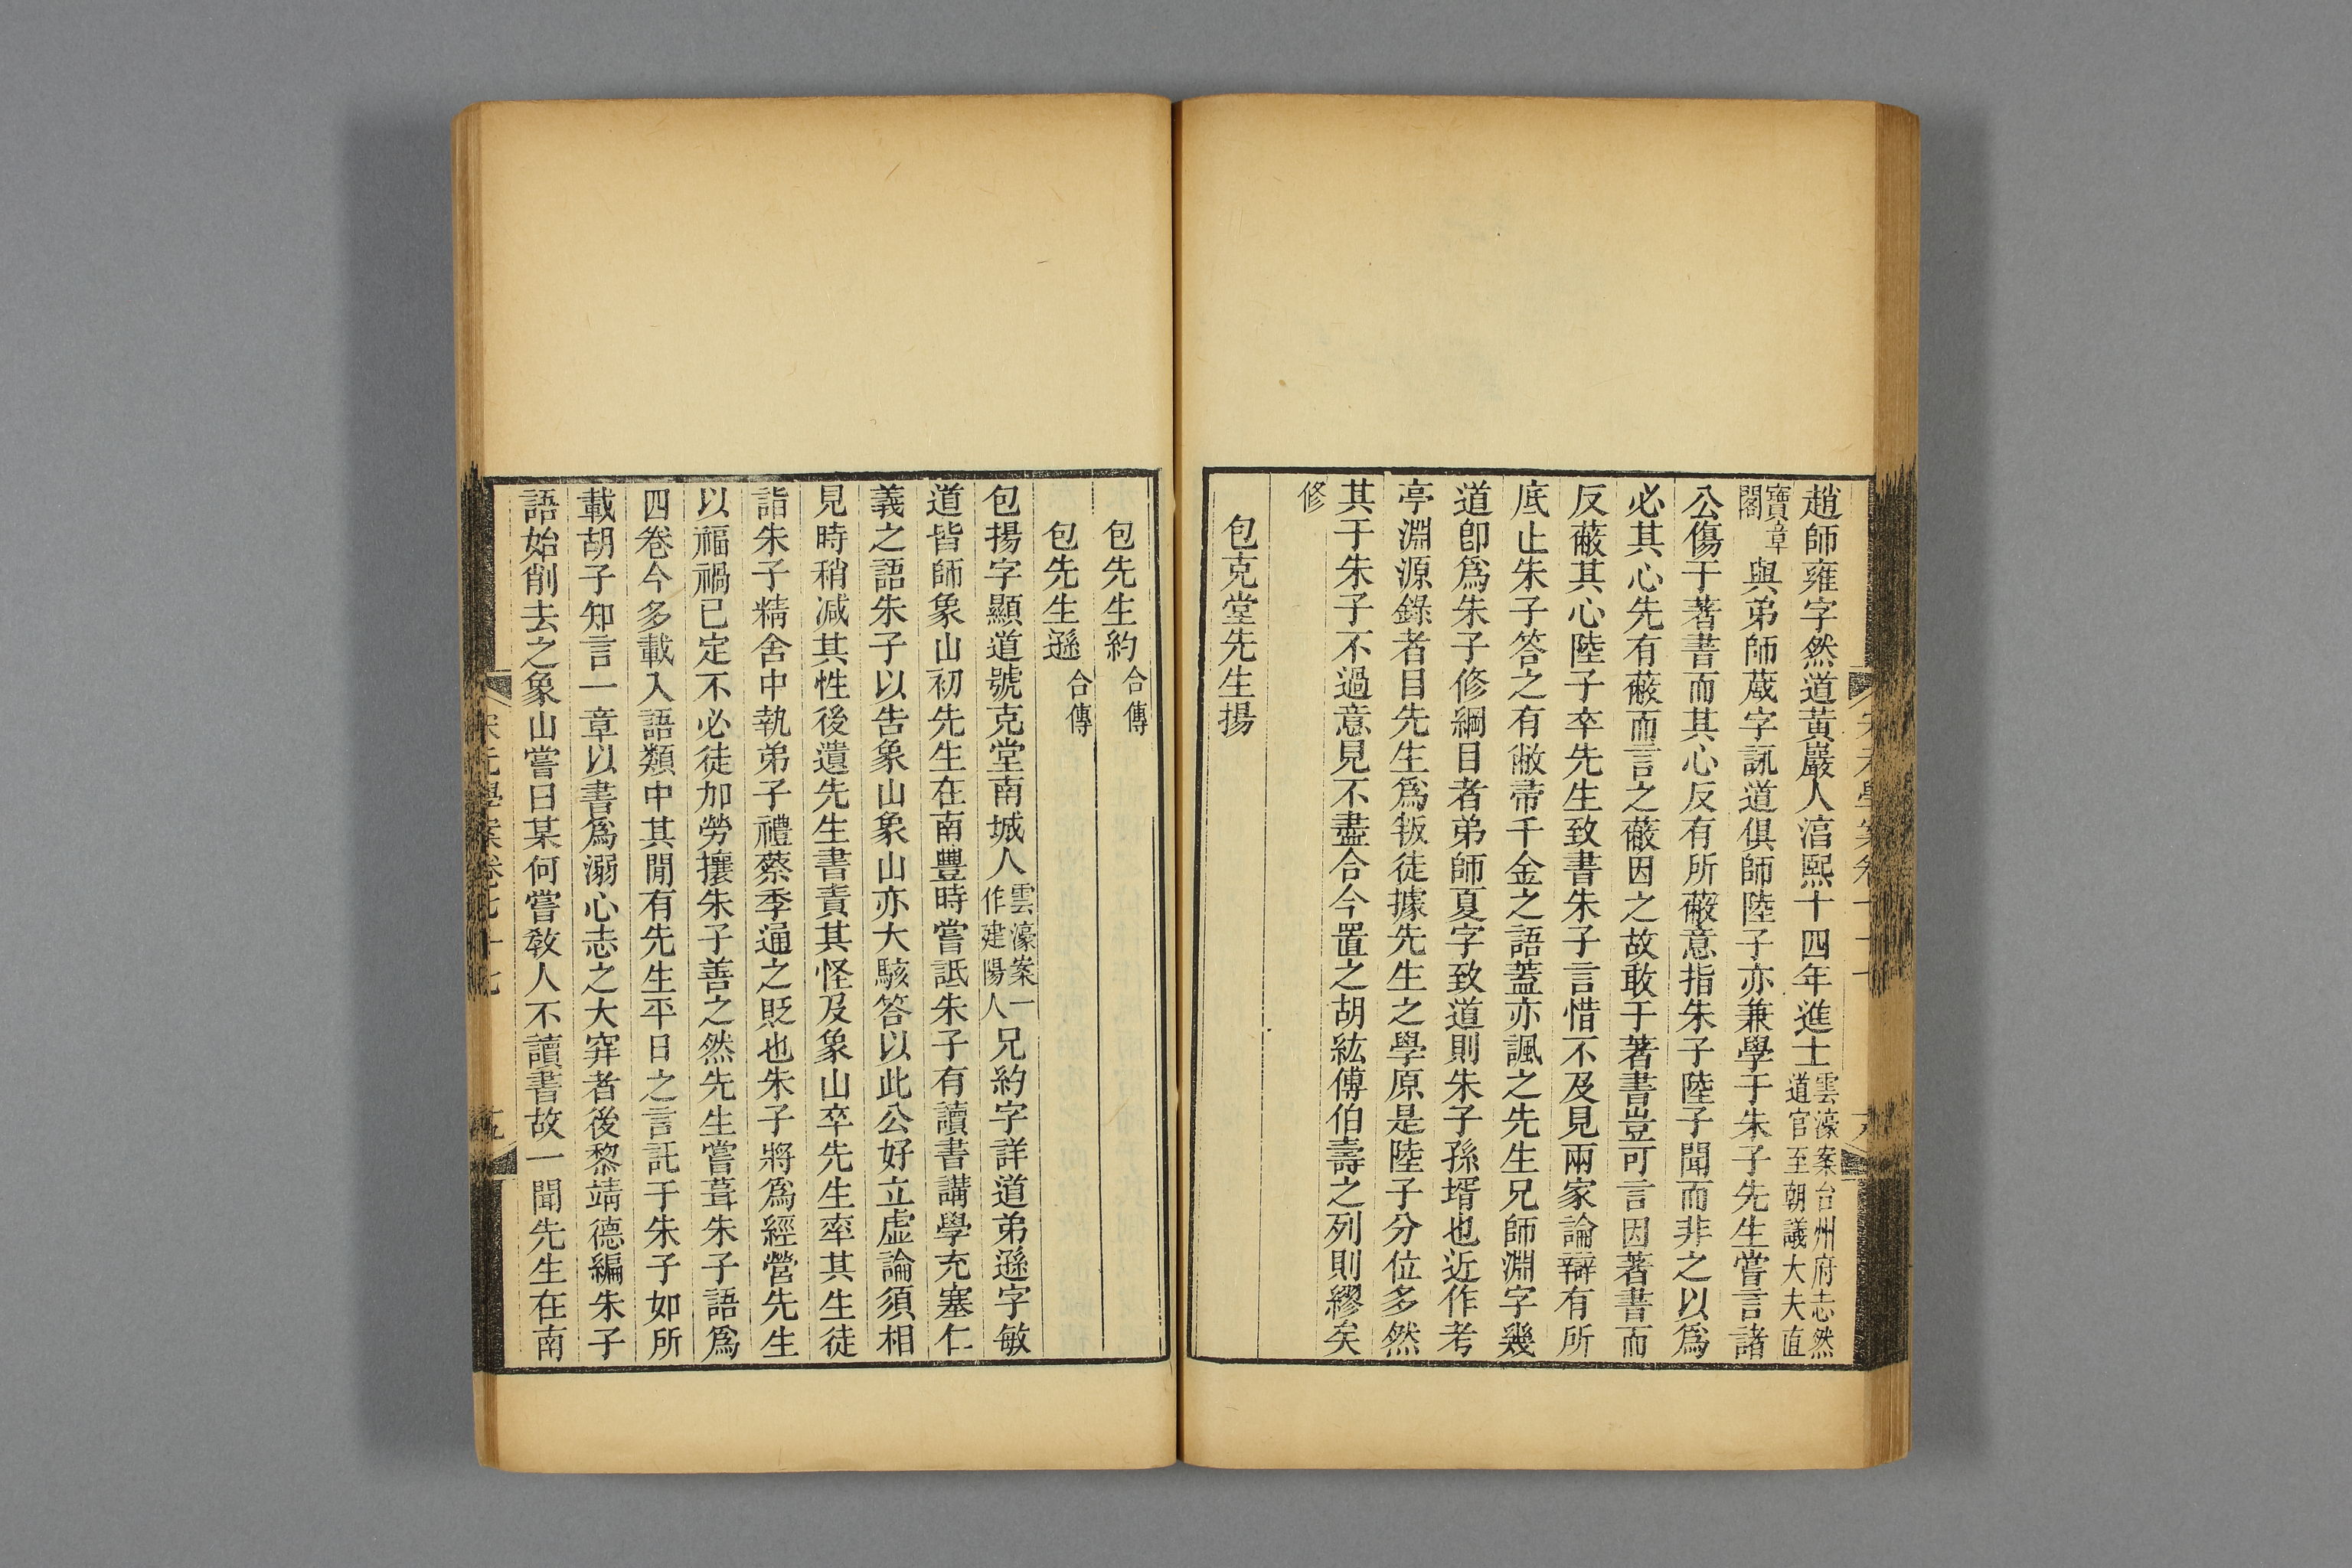 趙師雍字然道黃巖人淳熙十四年進士雲濠案台州府志然道官至朝議大夫直
寶章閣與弟師蒧字詠道俱師陸子亦兼學于朱子先生嘗言諸
公傷于著書而其心反有所蔽意指朱子陸子聞而非之以爲
必其心先有蔽而言之蔽因之故敢于著書豈可言因著書而
反蔽其心陸子卒先生致書朱子言惜不及見兩家論辯有所
底止朱子答之有敝帚千金之語蓋亦諷之先生兄師淵字幾
道卽爲朱子修綱目者弟師夏字致道則朱子孫壻也近作考
亭淵源錄者目先生爲叛徒據先生之學原是陸子分位多然
其于朱子不過意見不盡合今置之胡紘傅伯壽之列則繆矣
修
包克堂先生揚
包先生約合傳
包先生遜合傳
包揚字顯道號克堂南城人雲濠案一作建陽人兄約字詳道弟遜字敏
道皆師象山初先生在南豐時嘗詆朱子有讀書講學充塞仁
義之語朱子以告象山象山亦大駭答以此公好立虛論須相
見時稍減其性後遺先生書責其怪及象山卒先生率其生徒
詣朱子精舍中執弟子禮蔡季通之貶也朱子將爲經營先生
以福禍已定不必徒加勞攘朱子善之然先生嘗葺朱子語爲
四卷今多載入語類中其閒有先生平日之言託于朱子如所
載胡子知言一章以書爲溺心志之大穽者後黎靖德編朱子
語始削去之象山嘗曰某何嘗敎人不讀書故一聞先生在南
宋元學案卷七十七